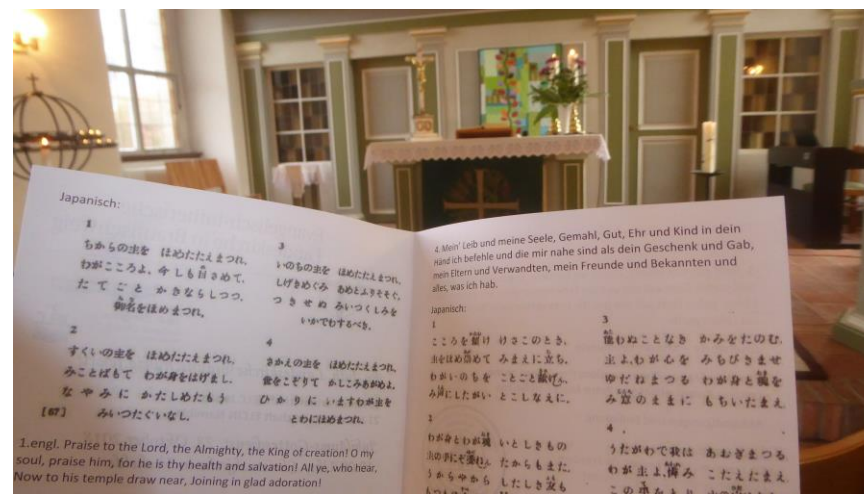 Japanisch:
1
ちからの主を ほめたたえまつれ、
わがこころよ、今しも目さめて、
たてごと かきならしつつ、
御名をほめまつれ。
2
すくいの主を ほめたたえまつれ、
みことばもて わが身をはげまし、
なやみに かたしめたもう
[67] みいつたぐいなし。
3
いのちの主を ほめたたえまつれ、
しげきめぐみ あめとふりそそぐ、
つきせぬ みいつくしみを
いかでわするべき。
4
さかえの主を ほめたたえまつれ、
世をこぞりて かしこみあがめよ、
ひかりに いますわが主を
とわにほめまつれ。
1.engl. Praise to the Lord, the Almighty, the King of creation! O my
soul, praise him, for he is thy health and salvation! All ye, who hear,
Now to his temple draw near, Joining in glad adoration!
4. Mein' Leib und meine Seele, Gemahl, Gut, Ehr und Kind in dein
Händ ich befehle und die mir nahe sind als dein Geschenk und Gab,
mein Eltern und Verwandten, mein Freunde und Bekannten und
alles, was ich hab.
Japanisch:
1
こころを けさこのとき、
主をほめ めて みまえに立ち、
わがいのちを ことごと げん、
み声にしたがい とこしなえに。
2
わが身とわが いとしきもの
主の手に たからもまた、
うからやから したしき友も
3
わぬことなき かみをたのむ、
主よ、わが心を みちびきませ
ゆだねまつる わが身と を
み のままに もちいたまえ
4.
うたがわで我は あおぎまつる
わが主よ、 み こたえたまえ